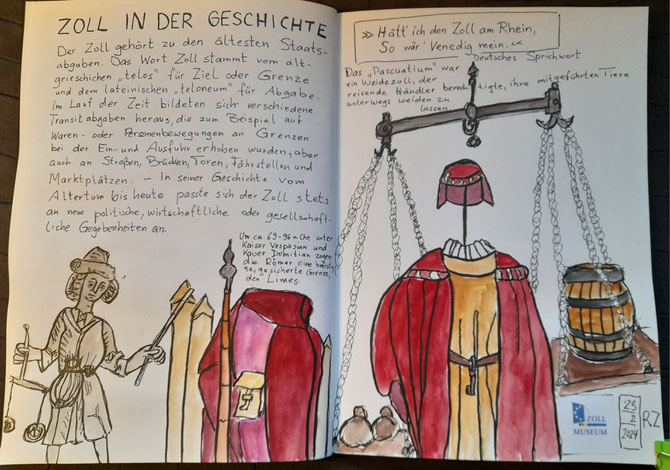 ZOLL IN DER GESCHICHTE
Der Zoll gehört zu den ältesten Staats-
abgaben. Das Wort Zoll stammt vom alt-
griechischen „telos" für Ziel oder Grenze
und dem lateinischen „teloneum" für Abgabe.
Im Lauf der Zeit bildeten sich verschiedene
Transitabgaben heraus, die zum Beispiel auf
Waren- oder Personenbewegungen an Grenzen
bei der Ein- und Ausfuhr erhoben wurden, aber
auch an Straßen, Brücken, Toren, Fährstellen und
Marktplätzen. – In seiner Geschichte vom
Altertum bis heute passte sich der Zoll stets
an neue politische, wirtschaftliche oder gesellschaft-
liche Gegebenheiten an.
Um ca. 69-96 n. Chr. unter
Kaiser Vespasian und
Kaiser Domitian zogen
die Römer eine
te, gesicherte Grenze,
den Limes.
» Hätt' ich den Zoll am Rhein,
So wär' Venedig mein. «
Deutsches Sprichwort
Das „Pascuatium" war
ein Weidezoll, der
reisende Händler berechtigte, ihre mitgeführten Tiere
unterwegs weiden zu
lassen
ZOLL
MUSEUM
23
2
2024
RZ